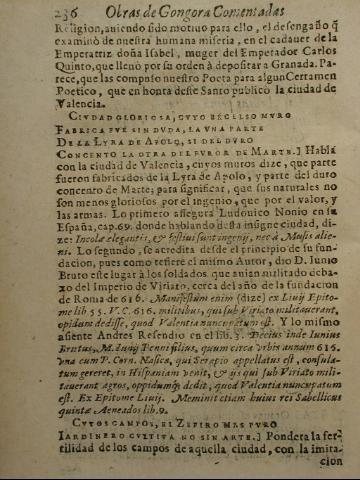 236 Obras de Gongora Comentadas
Religion, auiendo sido motiuo para ello, el desengaño q̃
examinò de nuestra humana miseria, en el cadauer de la
Emperatriz doña Isabel, muger del Emperador Carlos
Quinto, que lleuò por su orden à depositar a Granada. Pa-
rece, que las compuso nuestro Poeta para algun Certamen
Poetico, que en honra deste Santo publicò la ciudad de
Valencia.
CIVDAD GLORIOSA, CVYO EXCELSO MVRO
FABRICA FVE SIN DVDA, LA VNA PARTE
DE LA LYRA DE APOLO, SI DEL DVRO
CONCENTO LA OTRA DEL FVROR DE MARTE.] Habla
con la ciudad de Valencia, cuyos muros dize, que parte
fueron fabricados de la Lyra de Apolo, y parte del duro
concento de Marte; para significar, que sus naturales no
son menos gloriosos por el ingenio, que por el valor, y
las armas. Lo primero assegura Ludouico Nonio en su
España, cap. 69. donde hablando desta insigne ciudad, di-
ze: Incolæ elegantis, & festiui sunt ingenij, nec à Musis alie-
ni. Lo segundo, se acredita desde el principio de su fun-
dacion, pues como refiere el mismo Autor, dio D. Iunio
Bruto este lugar à los soldados que auian militado deba-
xo del Imperio de Viriato, cerca del año de la fundacion
de Roma de 616. Manifestum enim (dize) ex Liuij Epito-
me lib 55. V. C. 616. militibus, qui sub Viriato militauerant,
oppidum dedisse, quod Valentia nuncupatum est. Y lo mismo
assiente Andres Resendio en el lib. 3. Decius inde Iunius
Brutus, M. Iunij Penni filius, quum circa vrbis annum 616.
vna cum P. Corn. Nasica, qui Serapio appellatus est, consula-
tum gereret, in Hispaniam venit, & ijs qui sub Viriato mili-
tauerant agros, oppidumq; dedit, quod Valentia nuncupatum
est. Ex Epitome Liuij. Meminit etiam huius rei Sabellicus
quinta Aeneados lib. 9.
CVYOS CAMPOS, EL ZEFIRO MAS PVRO
IARDINERO CVLTIVA NO SIN ARTE.] Pondera la fer-
tilidad de los campos de aquella ciudad, con la imita-
cion